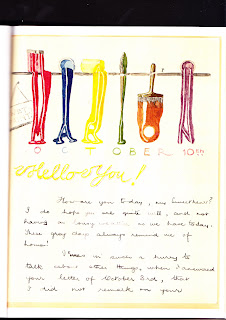 OCTOBER 10th
Hellow You!
How are you today, my
I do hope you are quite well, and not
having a as we have today.
These grey days always remind me of
home!
I was in such a hurry to
talk about other things, when I answered
your letter of October 3rd, that
I did not remark on your